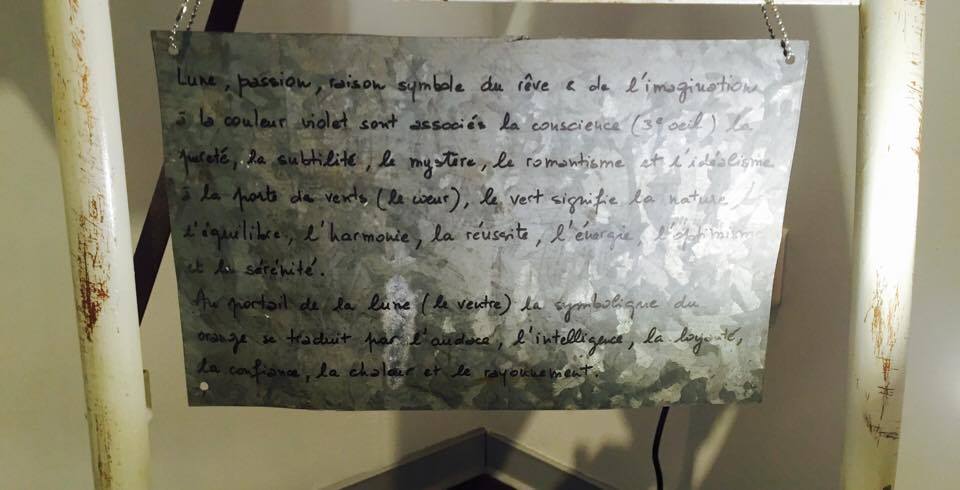 Lune, passion, raison symbole du rêve & de l'imagination
à la couleur violet sont associés la conscience (3e oeil) la
pureté, la subtilité, le mystère, le romantisme et l'idéalisme
à la porte des vents (le coeur), le vert signifie la nature,
l'équilibre, l'harmonie, la réussite, l'énergie, l'optimisme
et la sérénité.
Au portail de la lune (le ventre) la symbolique du
orange se traduit par l'audace, l'intelligence, la loyauté,
la confiance, la chaleur et le rayonnement.